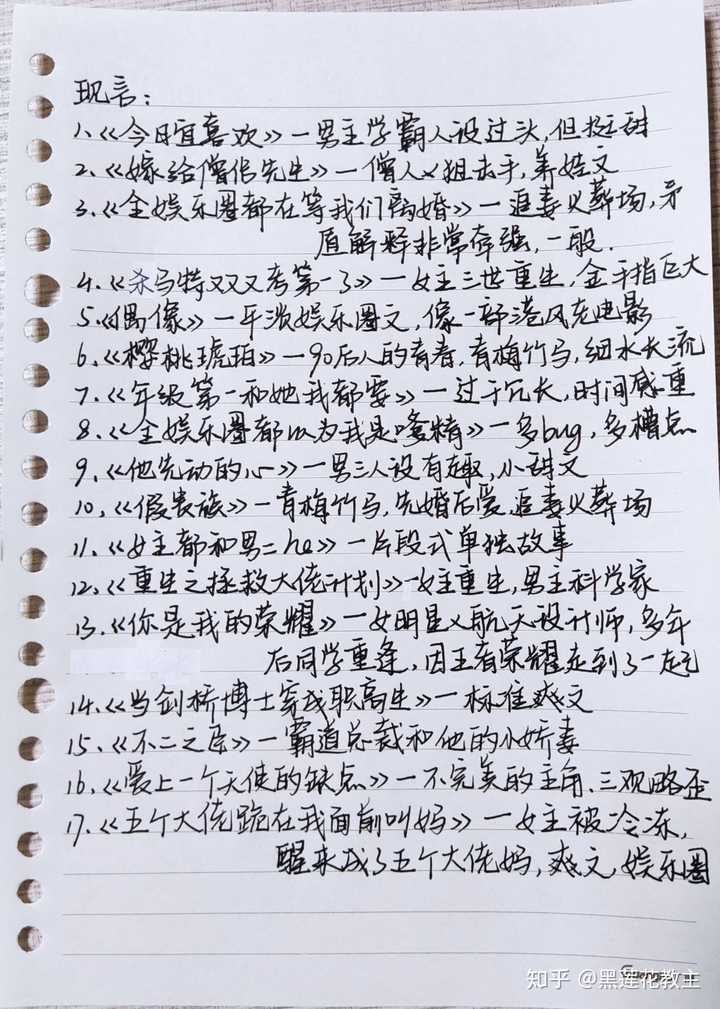 现言：
1、《今日宜喜欢》—男主学霸人设过头，但挺甜
2、《嫁给僧侣先生》—僧人×狙击手，养娃文
3、《全娱乐圈都在等我们离婚》—追妻火葬场，矛
盾解释非常牵强，一般.
4、《杀马特双双又考第一了》—女主三世重生，金手指巨大
5、《偶像》—平淡娱乐圈文，像一部港风老电影
6、《樱桃琥珀》—90后人的青春，青梅竹马，细水长流
7、《年级第一和她我都要》—过于冗长，时间感重
8、《全娱乐圈都以为我是嗲精》—多bug，多槽点
9、《他先动的心》—男二人设有趣，小甜文
10、《假贵族》—青梅竹马，先婚后爱，追妻火葬场
11、《女主都和男二he》—片段式单独故事
12、《重生之拯救大佬计划》—女主重生，男主科学家
13、《你是我的荣耀》—女明星×航天设计师，多年
后同学重逢，因王者荣耀走到了一起
14、《当剑桥博士穿成职高生》—标准爽文
15、《不二之臣》—霸道总裁和他的小娇妻
16、《爱上一个天使的缺点》—不完美的主角、三观略歪
17、《五个大佬跪在我面前叫妈》—女主被冷冻，
醒来成了五个大佬妈，爽文，娱乐圈
知乎 @黑莲花教主